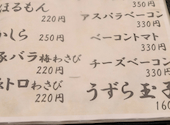 ほるもん
220円
しら
250円
バラ梅わさび
220円
トロわさび
220円
350円
アスパラベーコン
330円
ベーコントマト
330円
チーズベーコン
330円
うずら玉
160